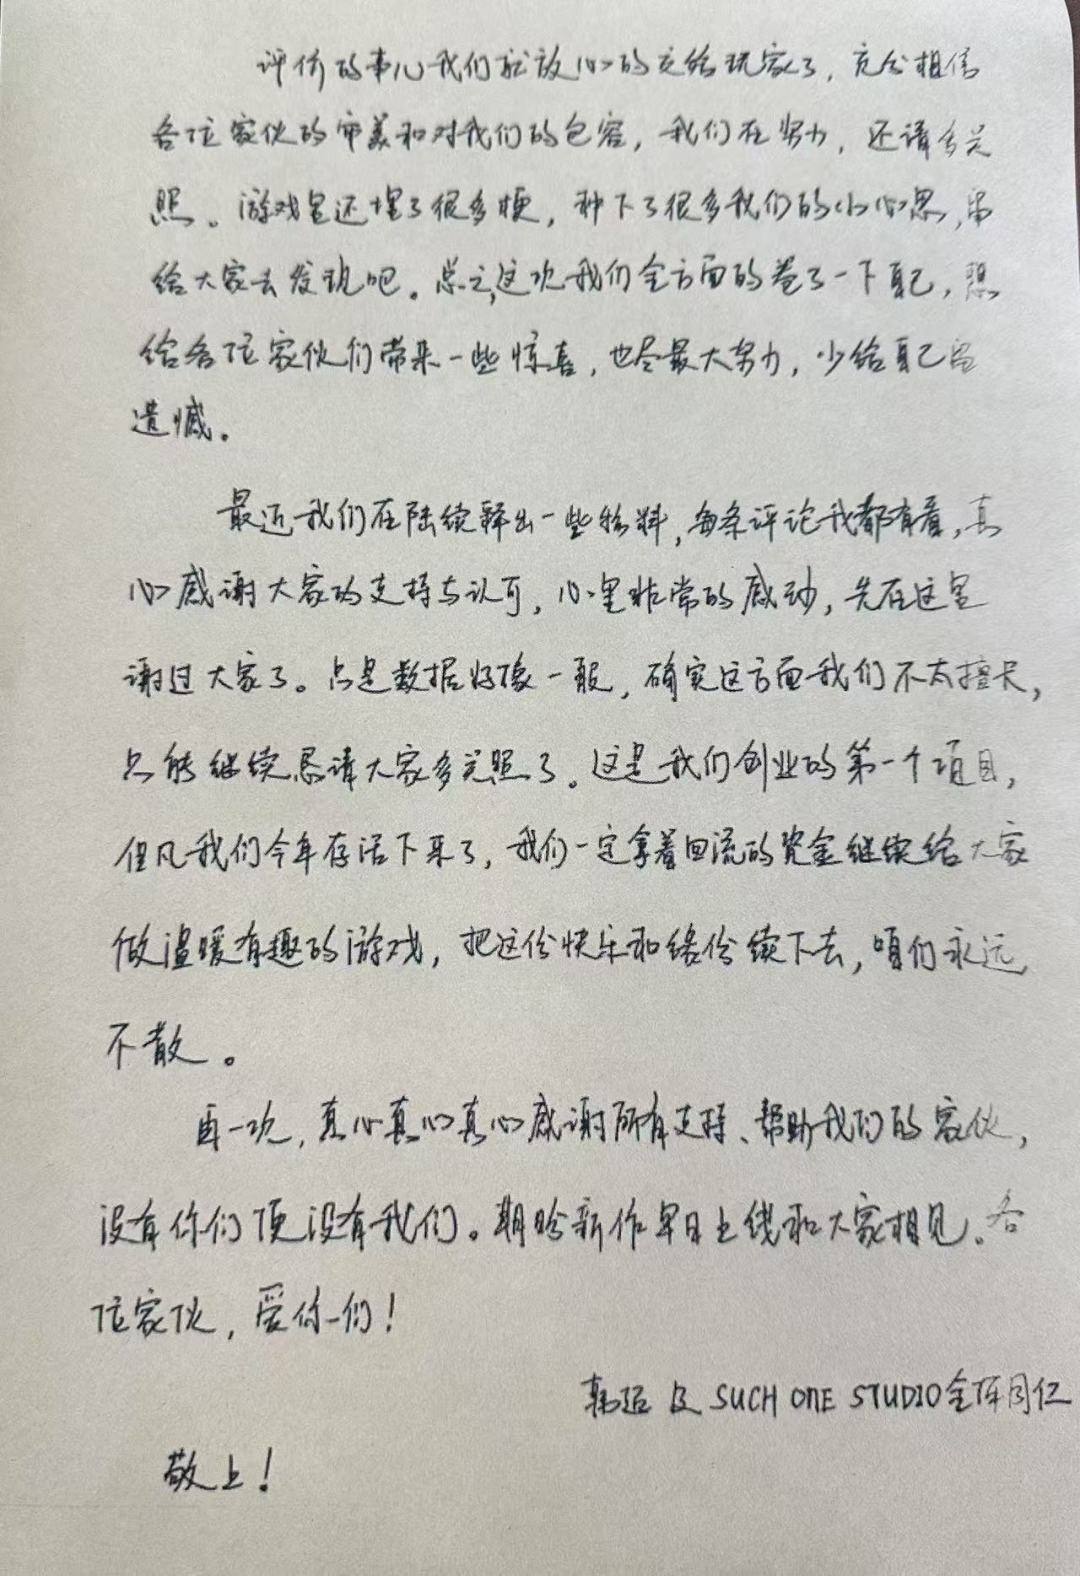 评价的事儿我们就放心的交给玩家了，充分相信
各位家伙的审美和对我们的包容，我们在努力，还请多关
照。游戏里还埋了很多梗，种下了很多我们的小心思，留
给大家去发现吧。总之，这次我们全方面的卷了一下自己，想
给各位家伙们带来一些惊喜，也尽最大努力，少给自己留
遗憾。
最近我们在陆续释出一些物料，每条评论我都有看，真
心感谢大家的支持与认可，心里非常的感动，先在这里
谢过大家了。只是数据好像一般，确实这方面我们不太擅长，
只能继续恳请大家多关照了。这是我们创业的第一个项目，
但凡我们今年存活下来了，我们一定拿着回流的资金继续给大家
做温暖有趣的游戏，把这份快乐和缘份续下去，咱们永远
不散。
再一次，真心真心真心感谢所有支持、帮助我们的家伙，
没有你们便没有我们。期盼新作早日上线和大家相见。各
位家伙，爱你们！
韩 及 SUCH ONE STUDIO全体同仁
敬上！